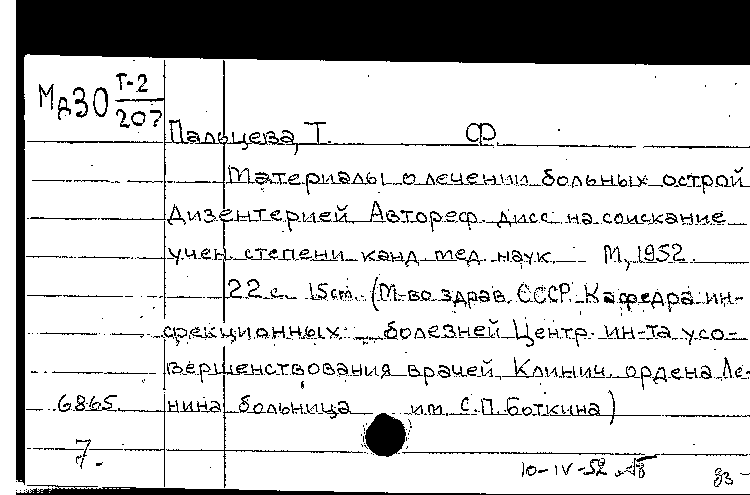 Мд30 Т-2/207
Пальцева, Т. Ф.
Материалы о лечении больных острой
дизентерией. Автореф. дисс. на соискание
учен. степени канд. мед. наук. М, 1952.
22 с. 15 cm. (М-во здрав. СССР. Кафедра ин-
фекционных болезней Центр. ин-та усо-
вершенствования врачей. Клинич. ордена Ле-
6865. нина больница им. С.П. Боткина)
7.
10-IV-52